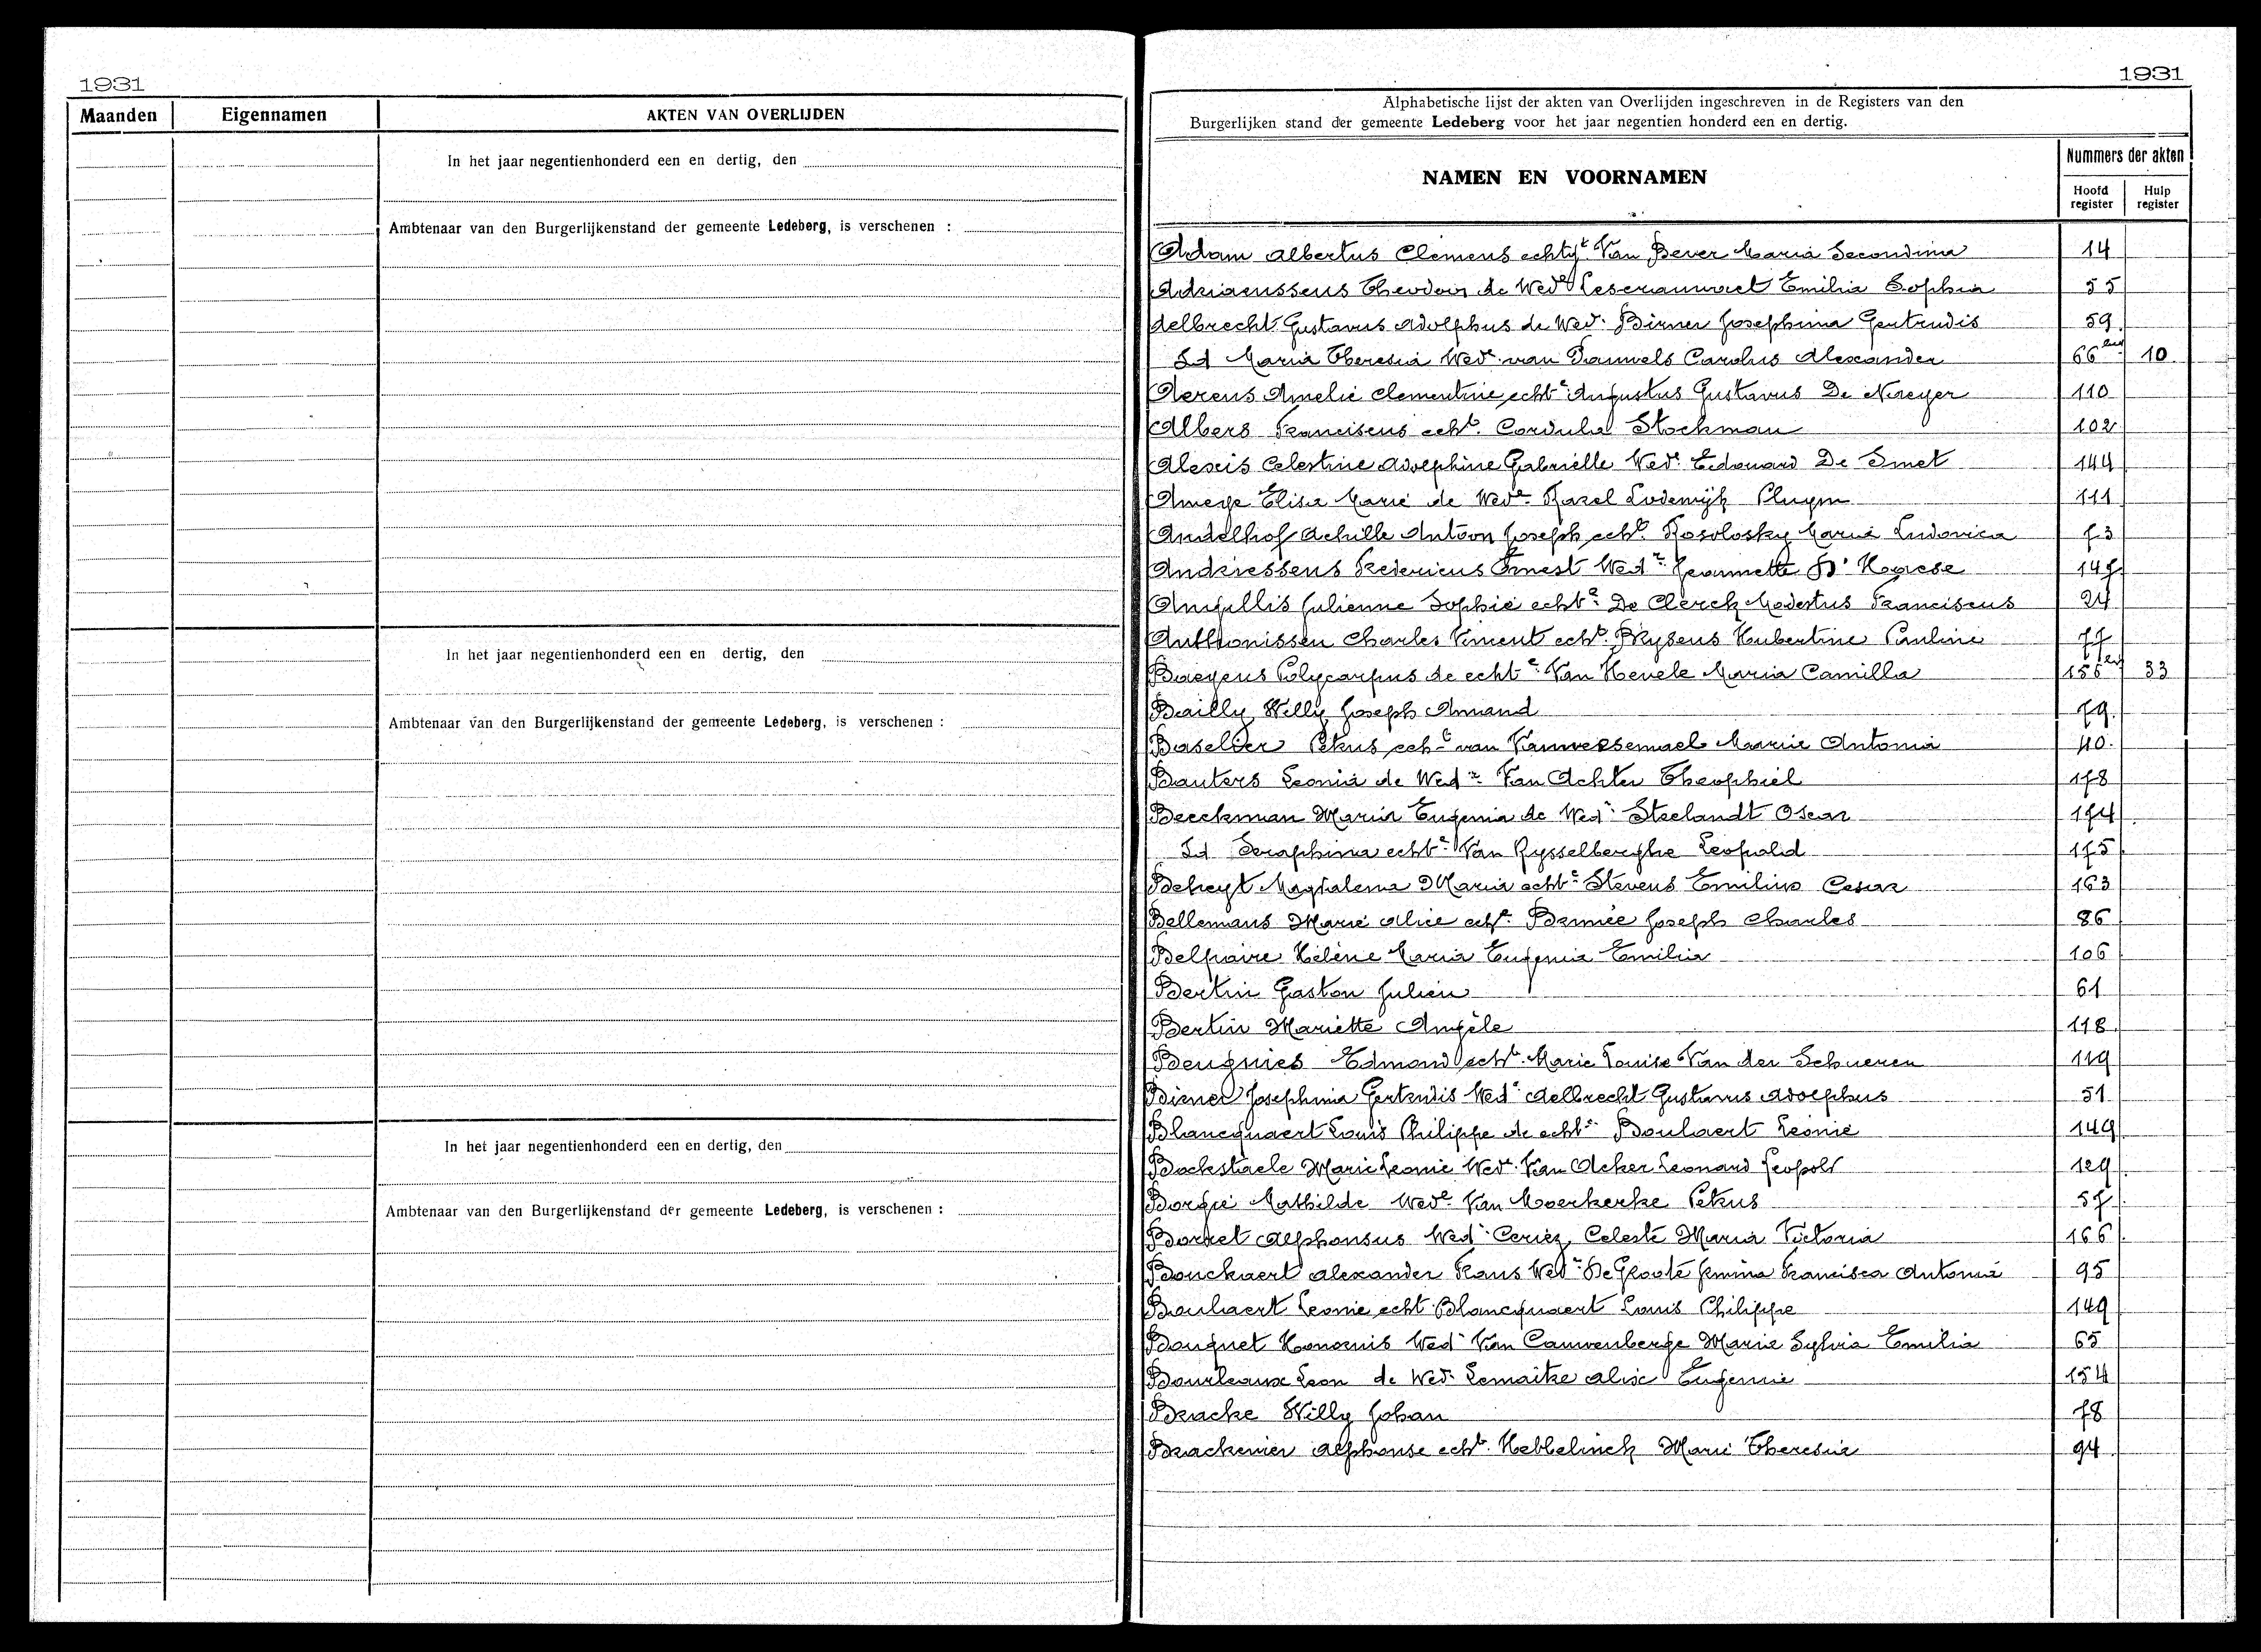 1931
Maanden Eigennamen AKTEN VAN OVERLIJDEN
In het jaar negentienhonderd een en dertig, den
Ambtenaar van den Burgerlijkenstand der gemeente Ledeberg, is verschenen :
In het jaar negentienhonderd een en dertig, den
Ambtenaar van den Burgerlijkenstand der gemeente Ledeberg, is verschenen :
In het jaar negentienhonderd een en dertig, den
Ambtenaar van den Burgerlijkenstand der gemeente Ledeberg, is verschenen :
1931
Alphabetische lijst der akten van Overlijden ingeschreven in de Registers van den
Burgerlijken stand der gemeente Ledeberg voor het jaar negentien honderd een en dertig.
NAMEN EN VOORNAMEN Nummers der akten
Hoofd register Hulp register
Adam Albertus Clemens echtgt Van Bever Maria Secondina 14
Adriaenssens Theodoor de Wede Emilia Sophia 55
Aelbrecht Gustavus Adolphus de Wed. Birner Josephina Gertrudis 59
Id Maria Theresia Wede van Pauwels Carolus Alexander 66 10
Aerens Amelie Clementine echte Augustus Gustavus De Naeyer 110
Albers Franciscus echt. Cordula Stockman 102
Alexis Celestine Adolphine Gabrielle Wed. Edouard De Smet 144
Ameye Elisa Marie de Wede Karel Lodewijk Pluym 111
Andelhof Achille Antoon Joseph echt. Kosolosky Maria Ludovica 73
Andriessens Fredericus Ernest Wedr Jeannette D'Haese 147
Angillis Julienne Sophie echte De Clerck Modestus Franciscus 24
Anthonissen Charles Vincent echt. Prysens Hubertine Pauline 77
Baeyens Polycarpus de echte Van Hevele Maria Camilla 156 33
Bailly Willy Joseph Armand 79
Baselder Petrus echt van Vanwessemael Maria Antonia 40
Bauters Leonia de Wede Van Achter Theophiel 178
Beeckman Maria Eugenia de Wede Steelandt Oscar 174
Id Seraphina echte Van Rysselberghe Leopold 175
Beheyt Magdalena Maria echte Stevens Emilius Cesar 163
Bellemans Marie Alice echt. Permée Joseph Charles 86
Belpaire Hélène Maria Eugenia Emilia 106
Bertin Gaston Julien 61
Bertin Mariette Angèle 118
Beugnies Edmond echt. Marie Louise Van der Schueren 119
Birner Josephina Gertrudis Wed Aelbrecht Gustavus Adolphus 51
Blancquaert Louis Philippe de echte Boulaert Leonie 149
Bockstaele Marie Leonie Wed. Van Acker Leonard Leopold 129
Borgie Mathilde Wede Van Moerkerke Petrus 57
Borret Alphonsus Wedr Ceriez Celeste Maria Victoria 166
Bouckaert Alexander Frans Wedr De Groote Jemima Francisca Antonia 95
Boulaert Leonie echt Blancquaert Louis Philippe 149
Bouquet Honorius Wedr Van Cauwenberge Maria Sylvia Emilia 65
Bourleaux Leon de Wed. Lemaitre Alice Eugenie 154
Bracke Willy Johan 78
Brackenier Alphonse echt. Hebbelinck Marie Theresia 94